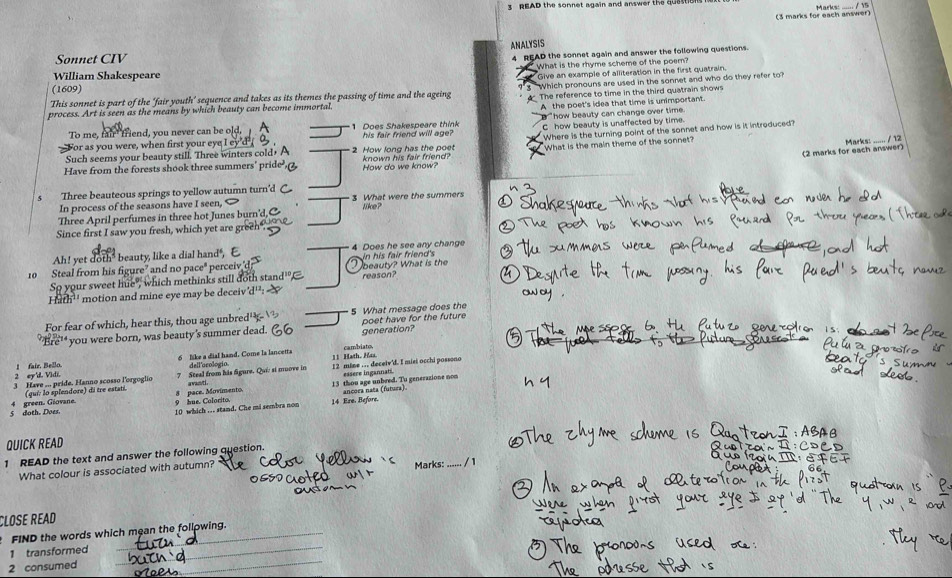 3 READ the sonnet again and answer the questions next to
Marks: ...... / 15
(3 marks for each answer)
Sonnet CIV
William Shakespeare
(1609)
This sonnet is part of the 'fair youth' sequence and takes as its themes the passing of time and the ageing
process. Art is seen as the means by which beauty can become immortal.
To me, fair¹ friend, you never can be old, A
For as you were, when first your eye I ey'd², B
Such seems your beauty still. Three winters cold, A
Have from the forests shook three summers' pride³,
5 Three beauteous springs to yellow autumn turn'd C
In process of the seasons have I seen,
Three April perfumes in three hot Junes burn'd, C
Since first I saw you fresh, which yet are green⁴. D
Ah! yet doth⁵ beauty, like a dial hand⁶, E
10 Steal from his figure⁷ and no pace⁸ perceiv'd;
So your sweet hue⁹, which methinks still doth stand¹⁰, E
Hath¹¹ motion and mine eye may be deceiv'd¹²:
For fear of which, hear this, thou age unbred¹³:
Ere¹⁴ you were born, was beauty's summer dead. GG
1 Does Shakespeare think
his fair friend will age?
2 How long has the poet
known his fair friend?
How do we know?
3 What were the summers
like?
4 Does he see any change
in his fair friend's
beauty? What is the
reason?
5 What message does the
poet have for the future
generation?
1 fair. Bello.
2 ey'd. Vidi.
3 Have ... pride. Hanno scosso l'orgoglio
(qui: lo splendore) di tre estati.
4 green. Giovane.
5 doth. Does.
6 like a dial hand. Come la lancetta
dell'orologio.
7 Steal from his figure. Qui: si muove in
avanti.
8 pace. Movimento.
9 hue. Colorito.
10 which ... stand. Che mi sembra non
cambiato.
11 Hath. Has.
12 mine ... deceiv'd. I miei occhi possono
essere ingannati.
13 thou age unbred. Tu generazione non
ancora nata (futura).
14 Ere. Before.
QUICK READ
1 READ the text and answer the following question.
What colour is associated with autumn?
The color yellow is
associated wit
autumn
Marks: ...... / 1
CLOSE READ
FIND the words which mean the following.
1 transformed turn'd
2 consumed burn'd
green
ANALYSIS
4 READ the sonnet again and answer the following questions.
What is the rhyme scheme of the poem?
Give an example of alliteration in the first quatrain.
3 Which pronouns are used in the sonnet and who do they refer to?
The reference to time in the third quatrain shows
A the poet's idea that time is unimportant.
B how beauty can change over time.
C how beauty is unaffected by time.
Where is the turning point of the sonnet and how is it introduced?
What is the main theme of the sonnet?
Marks: ...... / 12
(2 marks for each answer)
n3
① Shakespeare thinks that his friend can never be old
② The poet has known his friend for three years (three
③ the summers were perfumed and hot
④ Despite the time passing, his faire friend's beauty
away.
⑤ The message to the future generation is:
n4
① The rhyme scheme is Quatrain I: ABAB
Quatrain II: CDCD
Quatrain III: EFEF
Couplet: GG
② An example of alliteration in the first quatrain is "
were when first your eye I ey'd" The y, w, e and
repeated
③ The pronouns used are: They
The that is